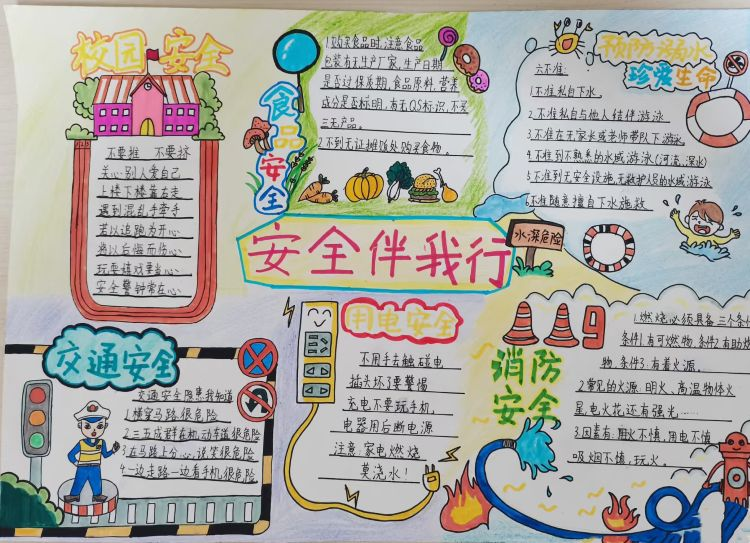 校园安全
不要推 不要挤
关心别人爱自己
上楼下楼靠右走
遇到混乱手牵手
若以追跑为开心
将以后悔而伤心
玩耍嬉戏要当心
安全警钟常在心
食品安全
1.购买食品时,注意食品
包装有无生产厂家,生产日期
是否过保质期,食品原料,营养
成分是否标明,有无QS标识,不买
三无产品。
2.不到无证摊饭处购买食物。
预防溺水
珍爱生命
六不准
1.不准私自下水。
2.不准私自与他人结伴游泳
3.不准在无家长或老师带队下游泳
4.不准到不熟悉的水域游泳(河流,深水)
5.不准到无安全设施,无救护人员的水域游泳
6.不准随意擅自下水施救
水深危险
安全伴我行
交通安全
交通安全隐患我知道
1.横穿马路很危险
2.三五成群在机动车道很危险
3.在马路上分心,说笑很危险
4.一边走路一边看手机很危险
用电安全
不用手去触碰电
插头坏了要警惕
充电不要玩手机
电器用后断电源
注意:家电燃烧
莫浇水!
119
消防安全
1.燃烧必须具备三个条件
条件1:有可燃物 条件2:有助燃
物 条件3:有着火源。
2.常见的火源:明火、高温物体火
星、电火花、还有强光……
3.因素有:用火不慎,用电不慎
吸烟不慎,玩火。